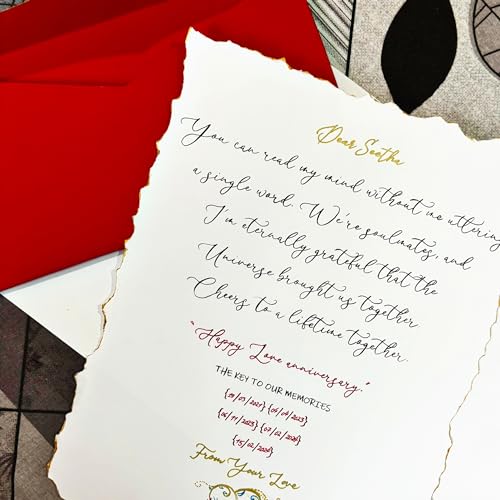 Dear Seetha
You can read my mind without me uttering
a single word. We're soulmates, and
I'm eternally grateful that the
Universe brought us together
Cheers to a lifetime together.
"Happy Love anniversary."
THE KEY TO OUR MEMORIES
From Your Love